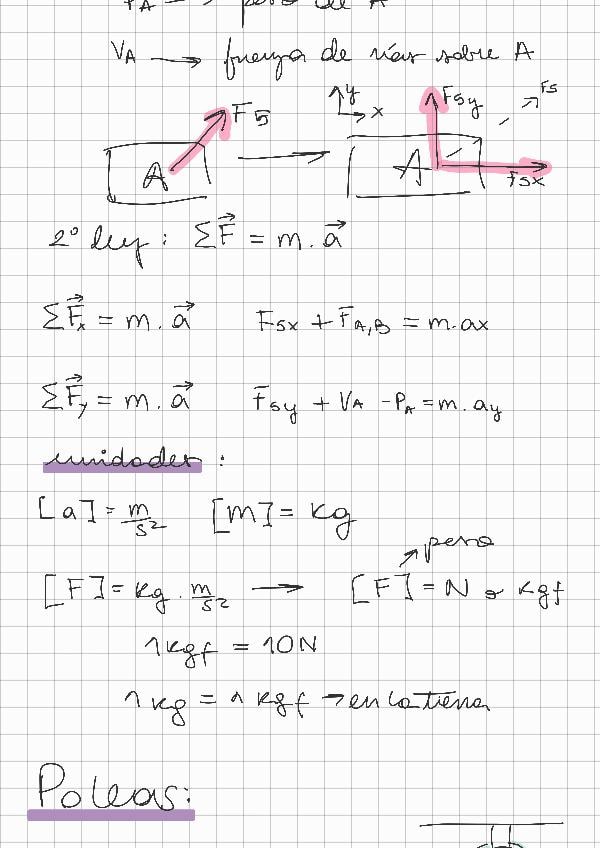 PA → peso de A
VA → fuerza de vías sobre A
F5 y x F5y F5
A → A F5x
2° ley: ΣF⃗ = m . a⃗
ΣF⃗x = m . a⃗ F5x + FA,B = m.ax
ΣF⃗y = m . a⃗ F5y + VA - PA = m. ay
unidades:
[a] = m/s² [m] = Kg
↗ peso
[F] = Kg . m/s² → [F] = N o Kgf
1 Kgf = 10N
1 Kg = 1 Kgf → en la tierra
Poleas: